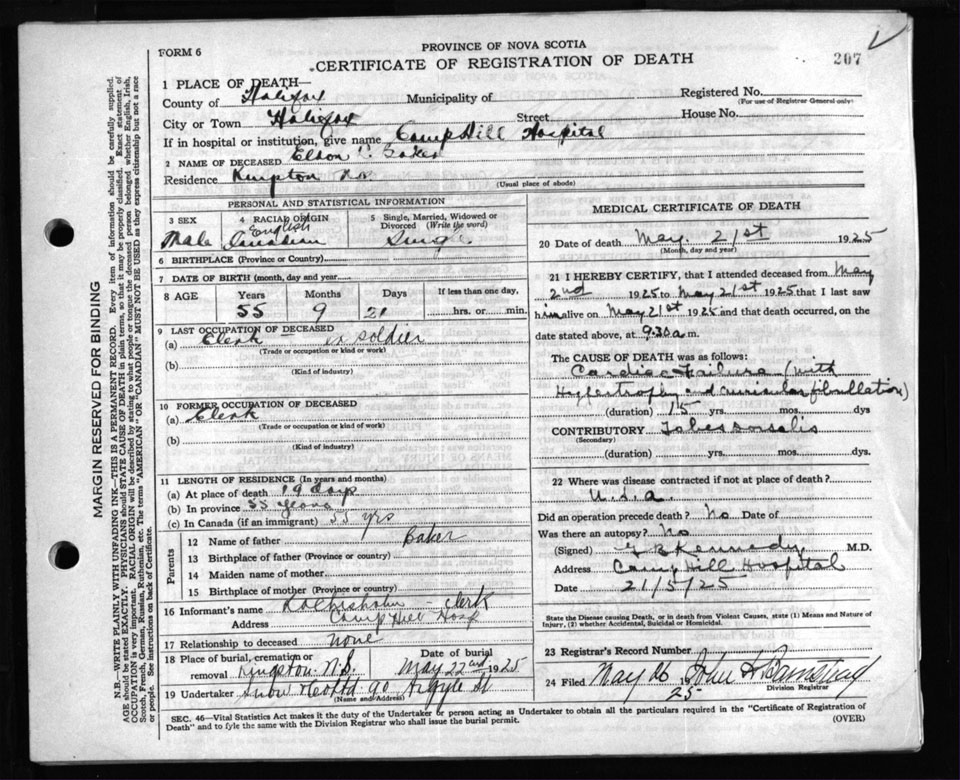 FORM 6
PROVINCE OF NOVA SCOTIA
CERTIFICATE OF REGISTRATION OF DEATH
207
1 PLACE OF DEATH—
County of Halifax Municipality of Registered No.
(For use of Registrar General only)
City or Town Halifax Street House No.
If in hospital or institution, give name Camp Hill Hospital
2 NAME OF DECEASED Baker
Residence N.S.
(Usual place of abode)
PERSONAL AND STATISTICAL INFORMATION
3 SEX 4 RACIAL ORIGIN 5 Single, Married, Widowed or Divorced (Write the word)
English
Male Canadian Single
6 BIRTHPLACE (Province or Country)
7 DATE OF BIRTH (month, day and year)
8 AGE Years Months Days If less than one day,
55 9 hrs. or min.
9 LAST OCCUPATION OF DECEASED
(a) Clerk ex soldier
(Trade or occupation or kind or work)
(b)
(Kind of industry)
10 FORMER OCCUPATION OF DECEASED
(a) Clerk
(Trade or occupation or kind or work)
(b)
(Kind of industry)
11 LENGTH OF RESIDENCE (In years and months)
(a) At place of death 19 days
(b) In province 55 years
(c) In Canada (if an immigrant) 55 yrs
Parents
12 Name of father Baker
13 Birthplace of father (Province or country)
14 Maiden name of mother
15 Birthplace of mother (Province or country)
16 Informant's name clerk
Address Camp Hill Hosp
17 Relationship to deceased none
18 Place of burial, cremation or removal Date of burial
Kingston N.S. May 22nd 1925
19 Undertaker Snow & Co Ltd 90 Argyle St
(Name and Address)
MEDICAL CERTIFICATE OF DEATH
20 Date of death May 21st 1925
(Month, day and year)
21 I HEREBY CERTIFY, that I attended deceased from May
2nd 1925 to May 21st 1925 that I last saw
him alive on May 21st 1925 and that death occurred, on the
date stated above, at 9.30 a.m.
The CAUSE OF DEATH was as follows:
Cardiac Failure (with
Hypertrophy and auricular fibrillation)
(duration) 15 yrs. mos. dys
CONTRIBUTORY Tabes dorsalis
(Secondary)
(duration) yrs. mos. dys.
22 Where was disease contracted if not at place of death?
U.S.A.
Did an operation precede death? No Date of
Was there an autopsy? No
(Signed) Kennedy M.D.
Address Camp Hill Hospital
Date 21/5/25
State the Disease causing Death, or in death from Violent Causes, state (1) Means and Nature of
Injury, (2) whether Accidental, Suicidal or Homicidal.
23 Registrar's Record Number
24 Filed May 26 1925 John
Division Registrar
SEC. 46—Vital Statistics Act makes it the duty of the Undertaker or person acting as Undertaker to obtain all the particulars required in the "Certificate of Registration of
Death" and to fyle the same with the Division Registrar who shall issue the burial permit.
(OVER)
MARGIN RESERVED FOR BINDING
N.B.—WRITE PLAINLY WITH UNFADING INK—THIS IS A PERMANENT RECORD. Every item of information should be carefully supplied.
AGE should be stated EXACTLY. PHYSICIANS should STATE CAUSE OF DEATH in plain terms, so that it may be properly classified. Exact statement of
OCCUPATION is very important. RACIAL ORIGIN will be described by stating to what people or tongue the deceased person belonged whether English, Irish,
Scotch, French, German, Russian, Ruthenian, etc. The terms "AMERICAN" or "CANADIAN" MUST NOT BE USED as they express citizenship but not a race
or people. See instructions on back of Certificate.